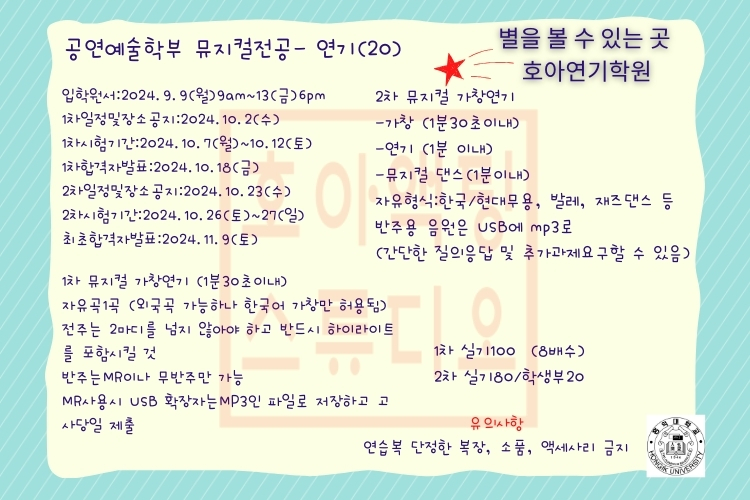 공연예술학부 뮤지컬전공- 연기(20)
별을 볼 수 있는 곳
호아연기학원
입학원서:2024.9.9(월)9am~13(금)6pm
1차일정및장소공지:2024.10.2(수)
1차시험기간:2024.10.7(월)~10.12(토)
1차합격자발표:2024.10.18(금)
2차일정및장소공지:2024.10.23(수)
2차시험기간:2024.10.26(토)~27(일)
최초합격자발표:2024.11.9(토)
1차 뮤지컬 가창연기 (1분30초이내)
자유곡1곡 (외국곡 가능하나 한국어 가창만 허용됨)
전주는 2마디를 넘지 않아야 하고 반드시 하이라이트
를 포함시킬 것
반주는MR이나 무반주만 가능
MR사용시 USB 확장자는MP3인 파일로 저장하고 고
사당일 제출
2차 뮤지컬 가창연기
-가창 (1분30초이내)
-연기 (1분 이내)
-뮤지컬 댄스(1분이내)
자유형식:한국/현대무용, 발레, 재즈댄스 등
반주용 음원은 USB에 mp3로
(간단한 질의응답 및 추가과제요구할 수 있음)
1차 실기100 (8배수)
2차 실기80/학생부20
유의사항
연습복 단정한 복장, 소품, 액세사리 금지
호아액팅
스튜디오
홍익대학교
HONGIK UNIVERSITY
1946